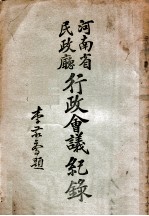 河南省
民政廳
行政會議紀錄
李宗黃題